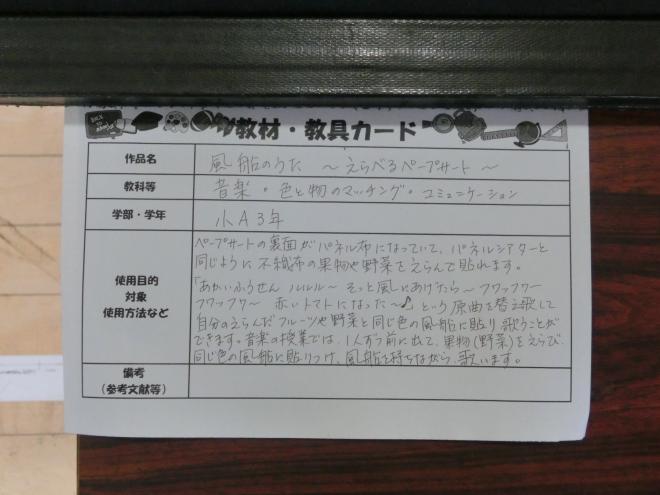 教材・教具カード
作品名 風船のうた ～えらべるペープサート～
教科等 音楽・色と物のマッチング・コミュニケーション
学部・学年 小A3年
使用目的
対象
使用方法など
ペープサートの裏面がパネル布になっていて、パネルシアターと
同じように不織布の果物や野菜をえらんで貼れます。
「あかいふうせん ルルルル〜 そっと風にあげたら〜フワッフワー
フワッフワ〜 赤いトマトになった〜♪」という原曲を替え歌して
自分のえらんだフルーツや野菜と同じ色の風船に貼り、歌うことが
できます。音楽の授業では、1人ずつ前に出て、果物(野菜)をえらび、
同じ色の風船に貼りつけ、風船を持ちながら、歌います。
備考
（参考文献等）